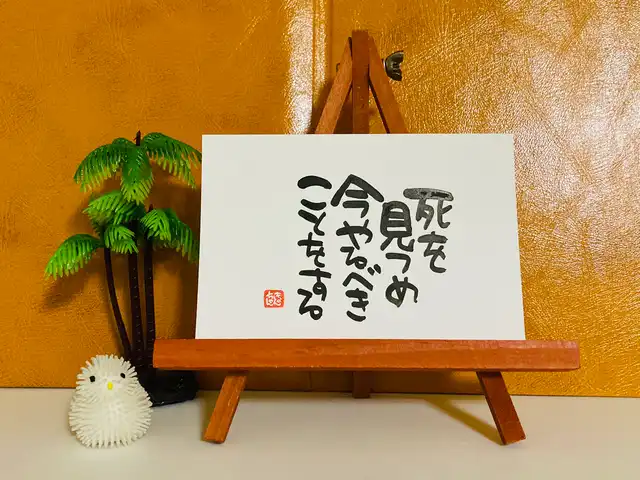 死を
見つめ
今やるべき
ことをする